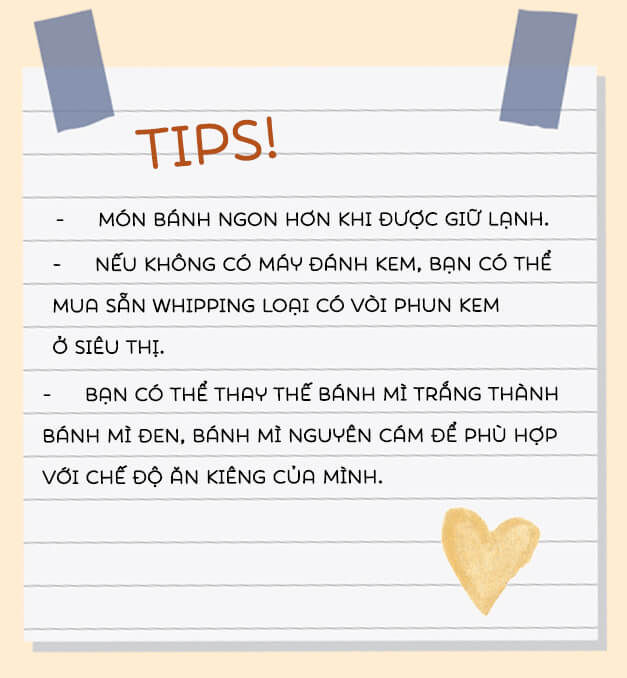 TIPS!
- MÓN BÁNH NGON HƠN KHI ĐƯỢC GIỮ LẠNH.
- NẾU KHÔNG CÓ MÁY ĐÁNH KEM, BẠN CÓ THỂ
MUA SẴN WHIPPING LOẠI CÓ VÒI PHUN KEM
Ở SIÊU THỊ.
- BẠN CÓ THỂ THAY THẾ BÁNH MÌ TRẮNG THÀNH
BÁNH MÌ ĐEN, BÁNH MÌ NGUYÊN CÁM ĐỂ PHÙ HỢP
VỚI CHẾ ĐỘ ĂN KIÊNG CỦA MÌNH.